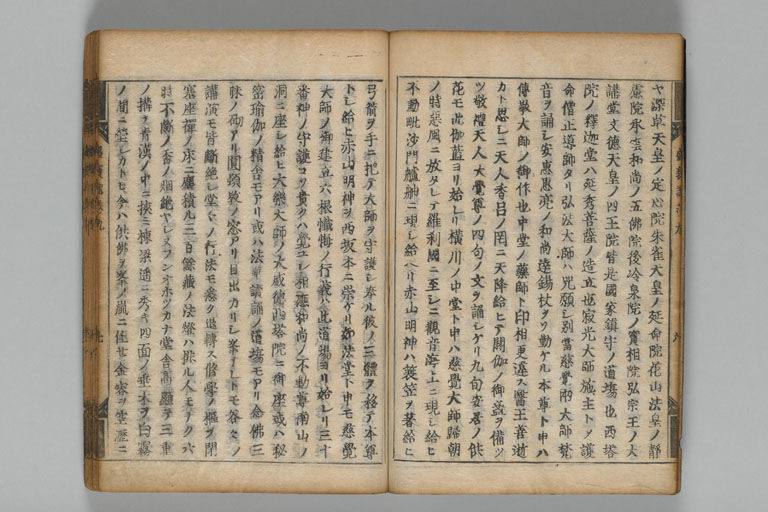 ヤ深草天皇ノ定心院朱雀天皇ノ延命院花山法皇ノ靜
慮院承雲和尚ノ五佛院後冷泉院ノ實相院弘宗王ノ大
講堂文德天皇ノ四王院皆是國家鎮守ノ道場也西塔
院ノ釋迦堂ハ延秀菩薩ノ造立也寂光大師施主トノ護
命僧正導師タリ弘法大師ハ咒願シ別當慈覺兩大師梵
音ヲ誦シ安惠惠亮ノ和尚達錫杖ヲソ勤ケル本尊ト申ハ
傳敎大師ノ御作也中堂ノ藥師ト印相更違ス醫王善逝
カト思シニ天人香呂ノ罔ニ天降給ヒテ閼伽ノ御器ヲ備ツ
ツ敬禮天人大覺尊ノ四句ノ文ヲ誦シケリ九旬安居ノ供
花モ此伽藍ヨリ始レリ橫川ノ中堂ト申ハ慈覺大師歸朝
ノ時惡風ニ放タレテ羅刹國ニ至シニ觀音海上ニ現シ給ヒ
不動毗沙門艫舳ニ現シ給ヘリ赤山明神ハ蓑笠ヲ著給ヒ
弓箭ヲ手ニ把テ大師ヲ守護シ奉ル彼ノ三體ヲ移テ本尊
トシ給ヒ赤山明神ヲ西坂本ニ崇ケリ如法堂ト申モ慈覺
大師ノ御建立六根懺悔ノ行儀ハ此道場ヨリ始レリ三十
番神ノ守護コソ貴クハ覺ユレ相應和尚ノ不動尊南山ノ
洞ニ座シ給ヒ大樂大師ノ大威德西塔院ニ御座或ハ秘
密瑜伽ノ精舍モアリ或ハ法華讀誦ノ道場モアリ念佛三
昧ノ砌アリ圓頓敎ノ窓アリ目出カリシ峯ナレトモ谷々ノ
講演モ皆斷絶シ堂々ノ行法モ悉ク退轉ス修學ノ樞ヲ閉
塞座禪ノ床ニ塵積ル三百餘歳ノ法燈ハ挑ル人モナク六
時不斷ノ香ノ烟絶ヤシヌランオホツカナ堂舍高顯テ三重
ノ搆ヲ青漢ノ中ニ挾ミ棟梁遙ニ秀テ四面ノ垂木ヲ白霧
ノ間ニ並シカトモ今ハ供佛ヲ峯ノ嵐ニ任セ金容ヲ空瀝ニ